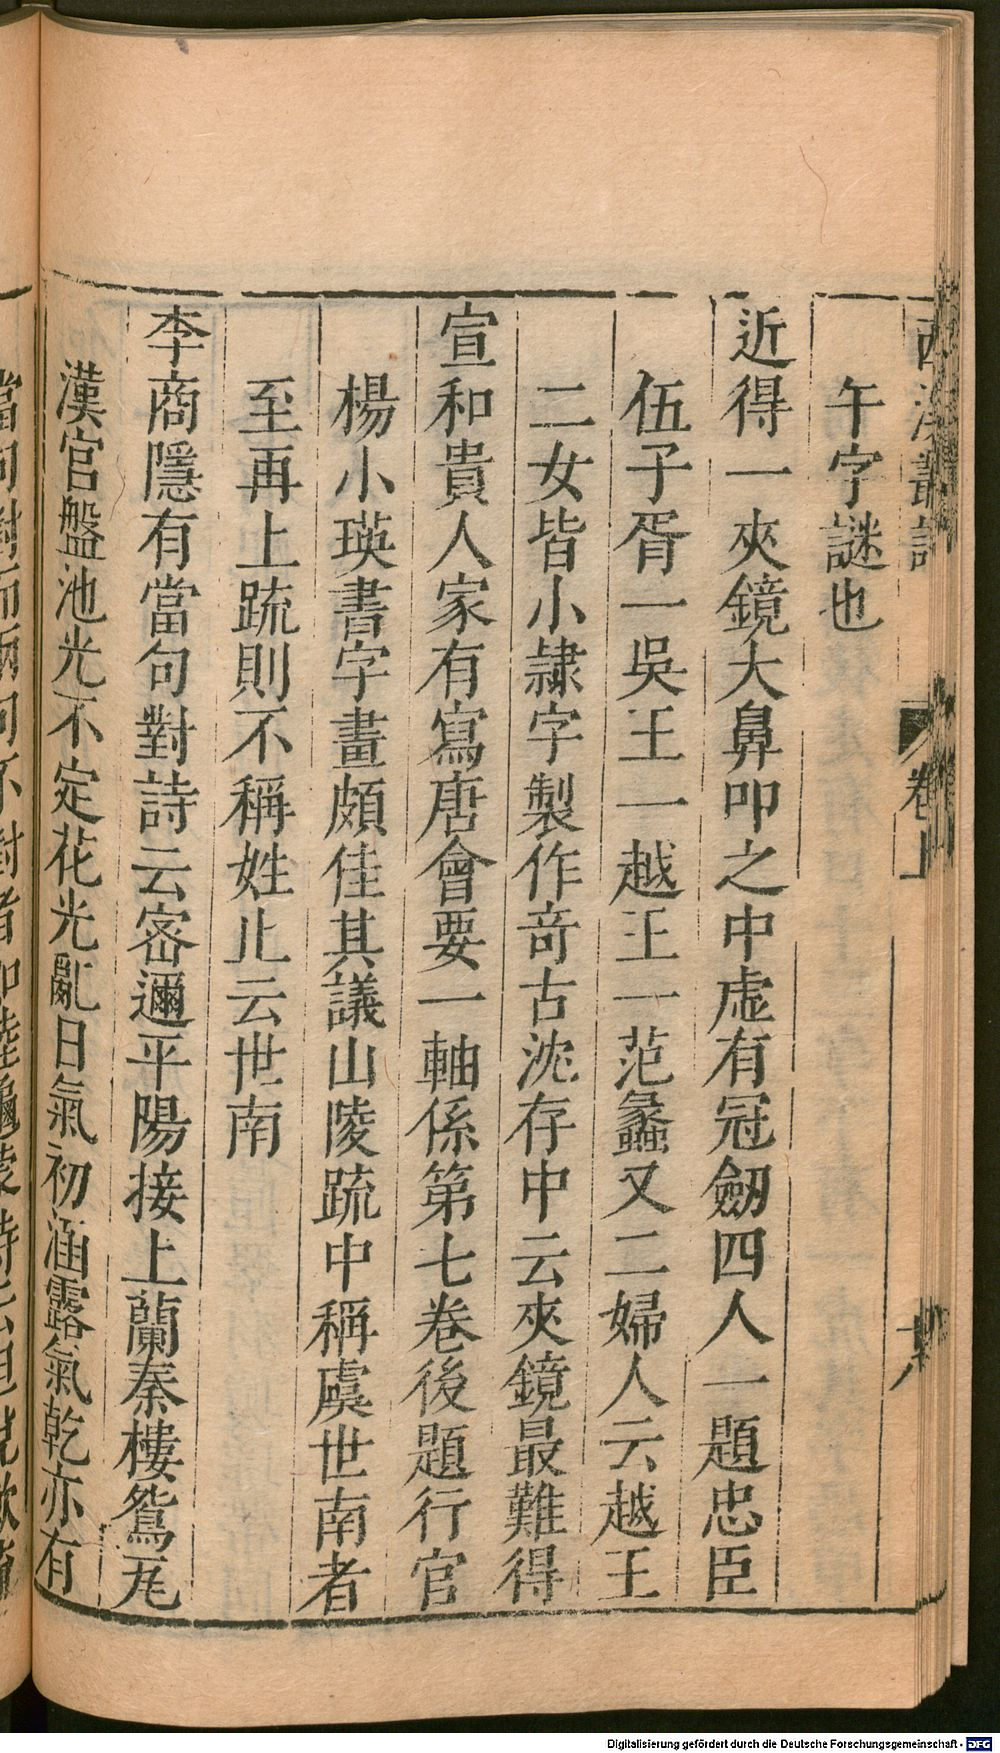 午字謎也
近得一夾鏡大鼻叩之中虛有冠劒四人一題忠臣
伍子胥一吳王一越王一范蠡又二婦人云越王
二女皆小隷字製作竒古沈存中云夾鏡最難得
宣和貴人家有寫唐會要一軸係第七卷後題行官
楊小瑛書字畫頗佳其議山陵疏中稱虞世南者
至再上疏則不稱姓止云世南
李商隱有當句對詩云宻邇平陽接上蘭秦樓鴛瓦
漢宮盤池光不定花光亂日氣初涵露氣乾亦有
Digitalisierung gefördert durch die Deutsche Forschungsgemeinschaft - DFG